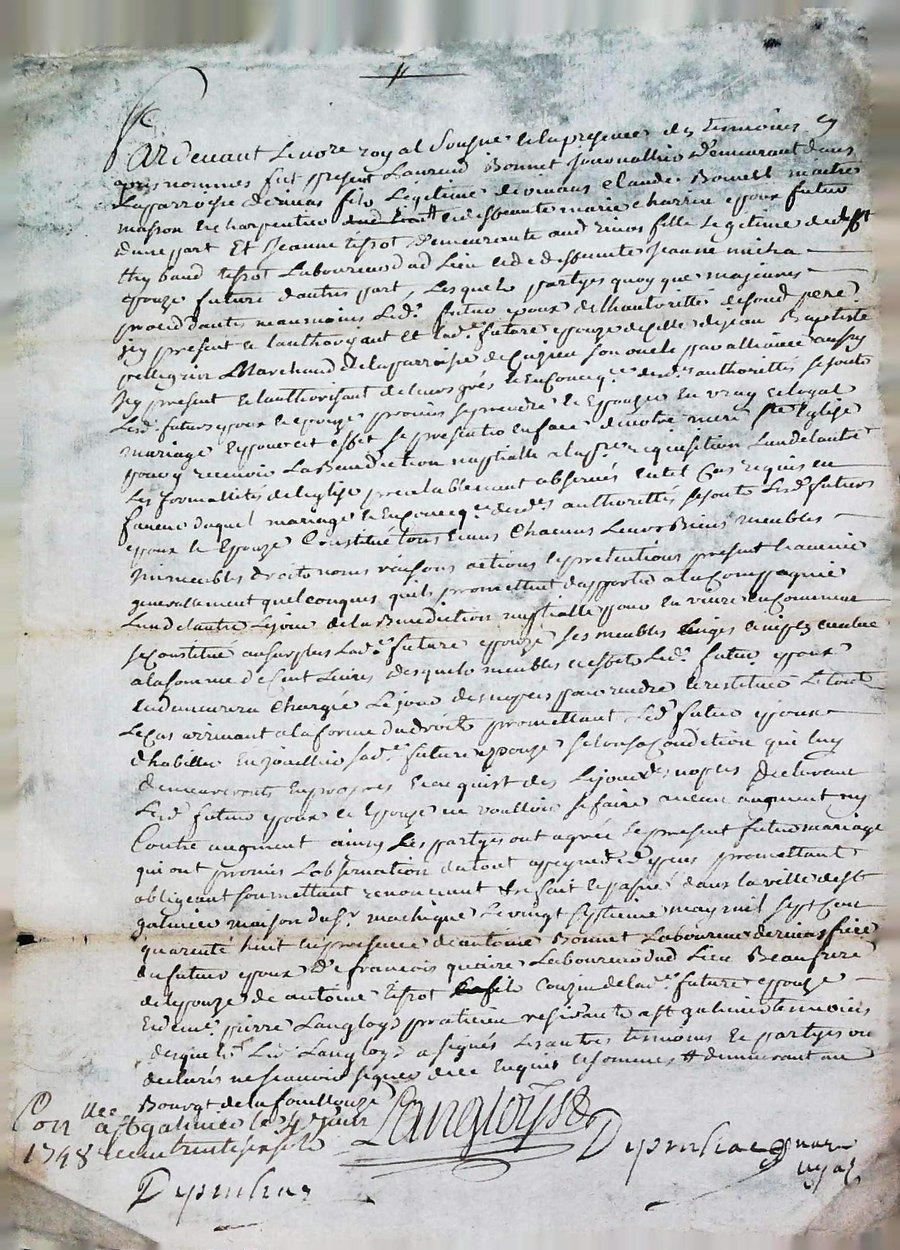 Pardevant Le nore royal Sousigné et en presence des temoins cy
apres nommés fut present Laurend Bonnet journallier demeurant dans
La parroisse de filz Légitime de vivans Claude Bonnet maitre
masson et charpentier et de deffunte marie charrin epoux futur
d'une part Et Jeanne tissot demeurante aud fille Legitime de
thybaud tissot Laboureur dud Lieu et de deffunte jeanne micha
epouze future d'autre part, Lesquels partyes quoy que majeures
procedantes neanmoins Led. futur epoux de l'hautorité de soud. pere
jcy present et L'authorizant et Lad.e future epouze de celle de jean Baptiste
pellegrin Marchand de la parroisse de Cuzieu son oncle par alliance aussy
jcy present et L'authorisant de leurs grés et En Concq.ce desd.s authorittés se sont
Lesd. futurs epoux et epouze promis se prendre et Epouzer en vray et loyal
mariage et pour cet effet se presenter en face de notre mere Ste Eglise
pour y recevoir La Benediction nuptialle a la p.re requisition Lun de lautre
Les formalités de l'eglise prealablement observés en tel Cas requis en
faveur duquel mariage et En Concq.ce desd.s authorittés se sont Lesd. futurs
epoux et Epouze Constitué tous et uns Chacuns Leurs Biens meubles
immeubles droits noms raisons actions et pretentions present et avenir
generallement quelconques quils promettent d'apporter a la Compagnie
Lun de lautre Le jour de la Benediction nuptialle pour en vivre en Commun
se Constitue au surplus Lad.e future epouze ses meubles linges et nippes
a la somme de Cent Livres desquels meubles et effets Led. futur epoux
en demeurera Chargé Le jour des nopces pour rendre et restituer Le tout
Le Cas arrivant a la forme du droit promettant Led. futur epoux
d'habiller Enjoailler sad.e future epouze selon sa Condition qui luy
demeureront En propres et acquist dès Le jour des nopces Declarant
Lesd. futurs epoux et Epouze ne voulloir se faire aucun augment ny
Contre augment ainsy Les partyes ont agréé Le present futur mariage
qui ont promis L'observation du tout a peyne de depens promettant
obligeant soumettant renonceant &c fait et passé dans la ville de St
galmier maison du S.r machique Le vingt septieme may mil sept Cent
quarente huit en presence de antoine Bonnet Laboureur de frere
du futur epoux De françois quaire Laboureur dud Lieu Beaufrere
de l'epouze de antoine tissot Cousin de lad.e future epouze
Et de m.e pierre Langloys praticien residant a St galmier temoins
desquels Led. Langloys a signé Les autres temoins Et partyes ont
declarés ne sçavoir signer de ce Enquis et sommés # demeurant au
Bourgt de la fouillouze
Con.llee a St galmier le 4 juin
1748
Langloys
royal